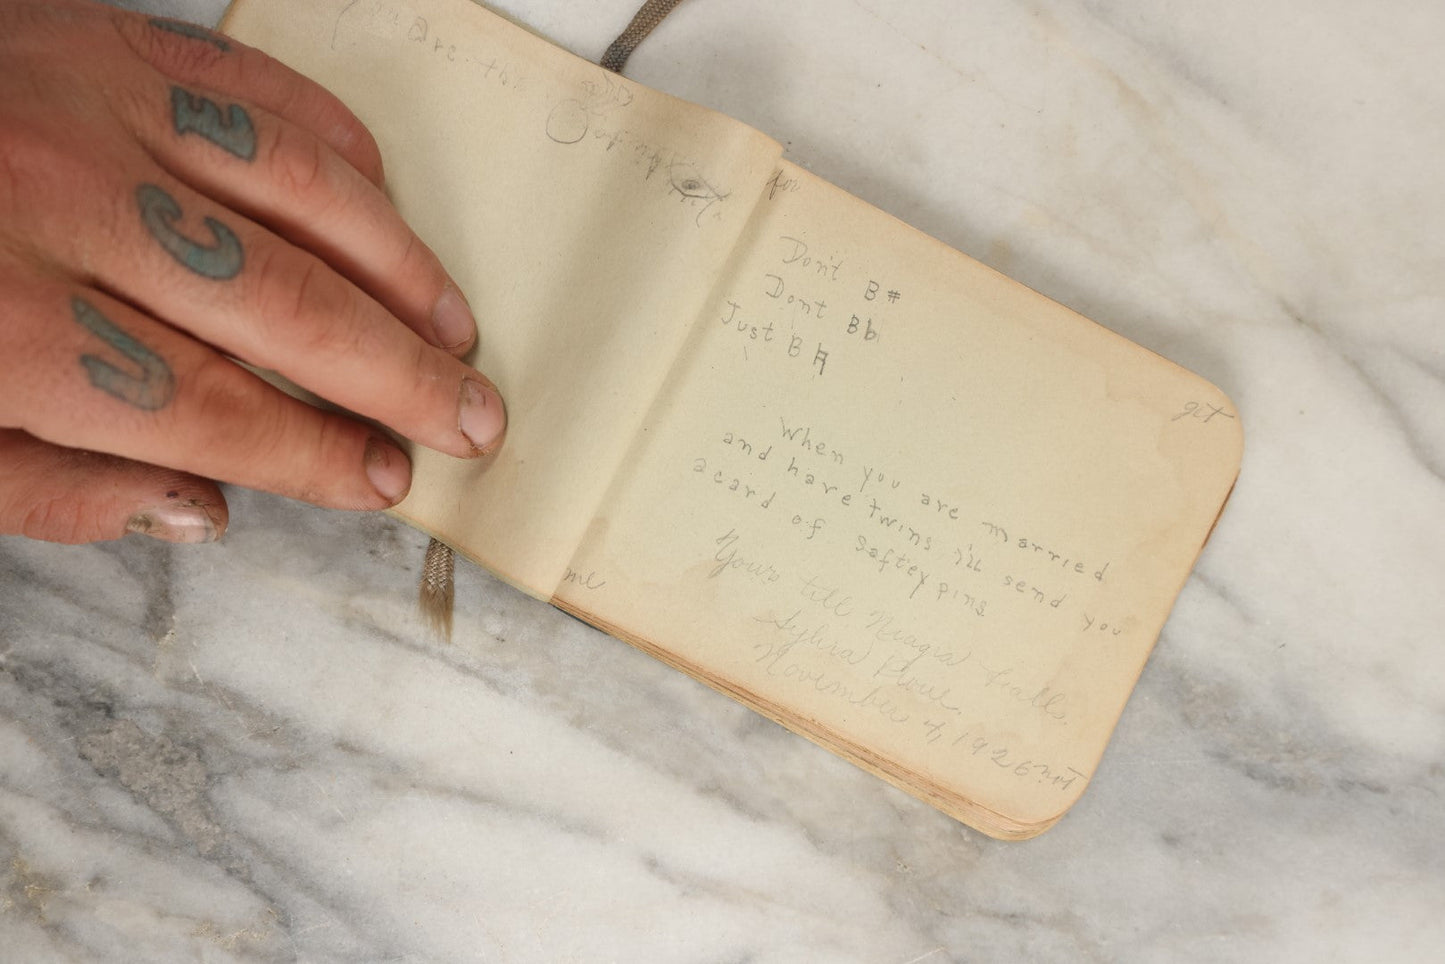 U C E
are the
for
get
Don't B#
Dont B♭
Just B♮
When you are married
and have twins i'll send you
a card of saftey pins
Yours till Niagra Falls.
Sylvia
November 4, 1926
me
not